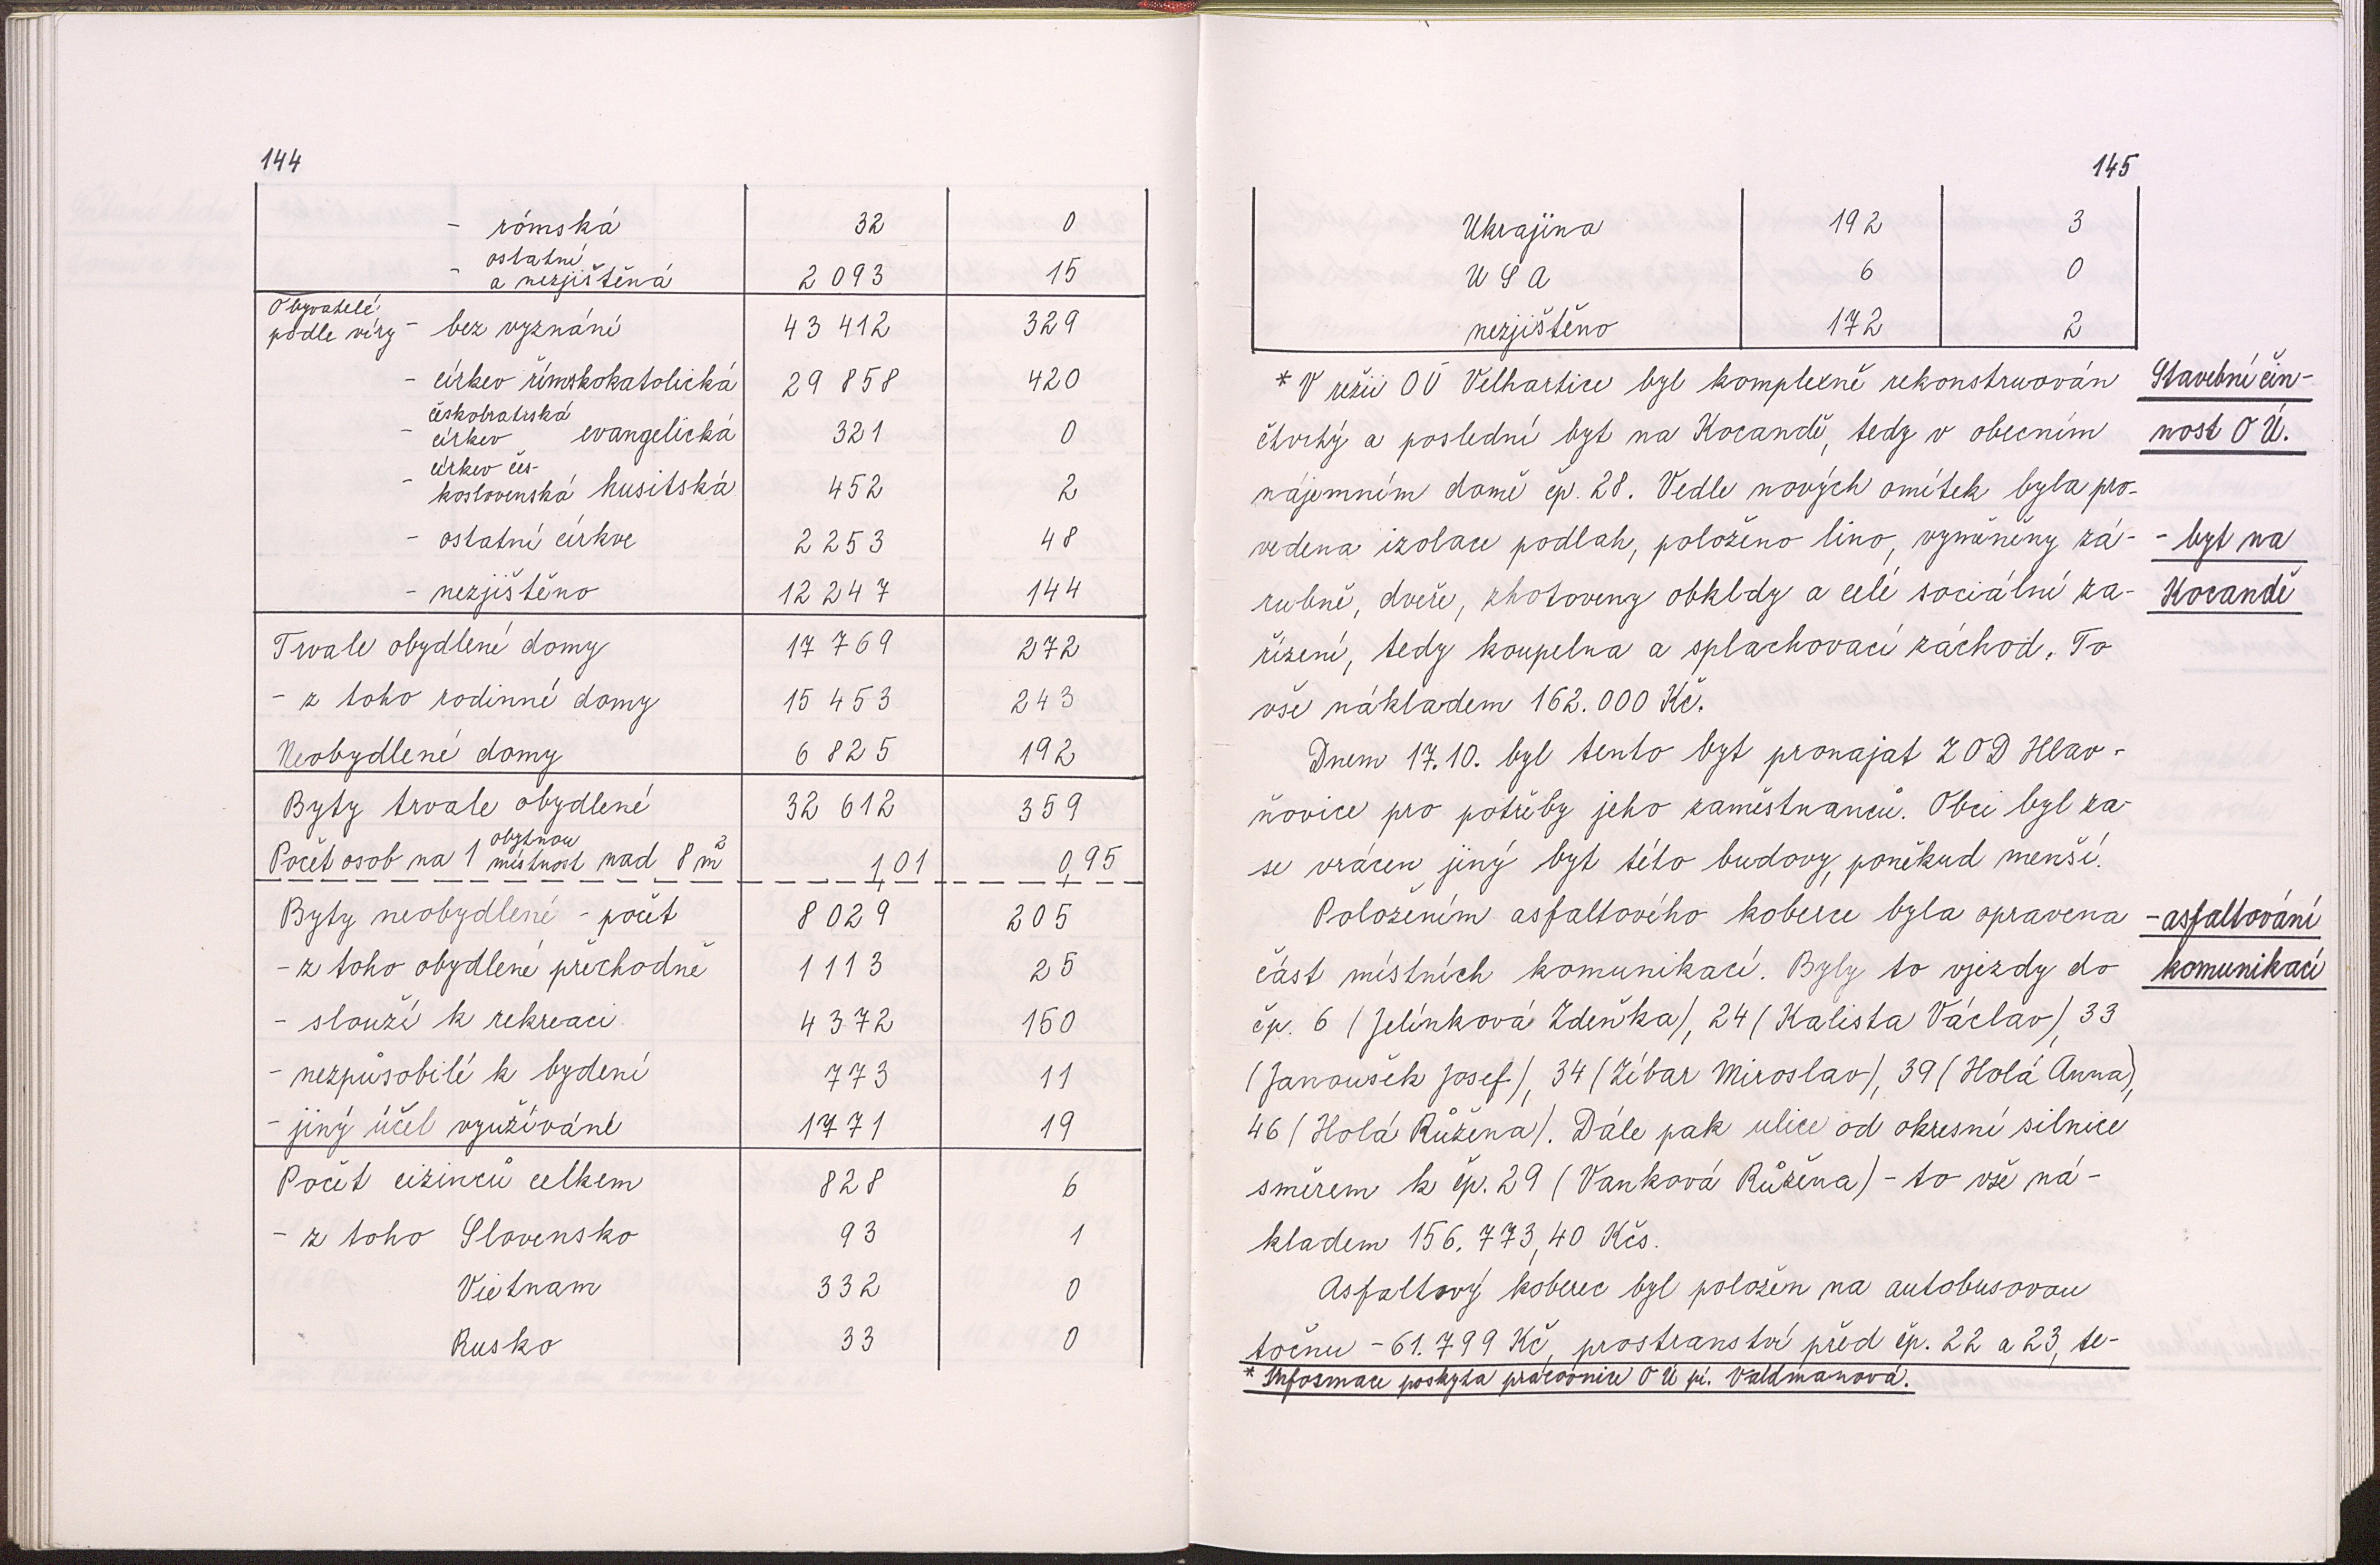 144
- rómská 32 0
ostatní
- a nezjištěná 2 093 15
Obyvatelé
podle víry - bez vyznání 43 412 329
- církev římskokatolická 29 858 420
českobratrská
- církev evangelická 321 0
církev čes-
- koslovenská husitská 452 2
- ostatní církve 2 253 48
- nezjištěno 12 247 144
Trvale obydlené domy 17 769 272
- z toho rodinné domy 15 453 243
Neobydlené domy 6 825 192
Byty trvale obydlené 32 612 359
Počet osob na 1 obytnou místnost nad 8 m² 1,01 0,95
Byty neobydlené - počet 8 029 205
- z toho obydlené přechodně 1 113 25
- slouží k rekreaci 4 372 150
- nezpůsobilé k bydení 773 11
- jiný účel využíváné 1771 19
Počet cizinců celkem 828 6
- z toho Slovensko 93 1
Vietnam 332 0
Rusko 33 0
145
Ukrajina 192 3
U S A 6 0
nezjištěno 172 2
* V režii OÚ Velhartice byl komplexně rekonstruován Stavební čin-
čtvrtý a poslední byt na Kocandě, tedy v obecním nost O Ú.
nájemním domě čp. 28. Vedle nových omítek byla pro-
vedena izolace podlah, položeno lino, vyměněny zá- - byt na
rubně, dveře, zhotoveny obkldy a celé sociální za- Kocandě
řízení, tedy koupelna a splachovací záchod. To
vše nákladem 162.000 Kč.
Dnem 17.10. byl tento byt pronajat ZOD Hlav-
ňovice pro potřeby jeho zaměstnanců. Obci byl za-
se vrácen jiný byt této budovy, poněkud menší.
Položením asfaltového koberce byla opravena - asfaltování
část místních komunikací. Byly to vjezdy do komunikací
čp. 6 (Jelínková Zdeňka), 24 (Kalista Václav), 33
(Janoušek Josef), 34 (Zíbar Miroslav), 39 (Holá Anna),
46 (Holá Růžena). Dále pak ulice od okresní silnice
směrem k čp. 29 (Vanková Růžena) - to vše ná-
kladem 156.773,40 Kčs.
Asfaltový koberec byl položen na autobusovou
točnu - 61.799 Kč, prostranství před čp. 22 a 23, te-
* Informace poskytla pracovnice O Ú pí. Valdmanová.